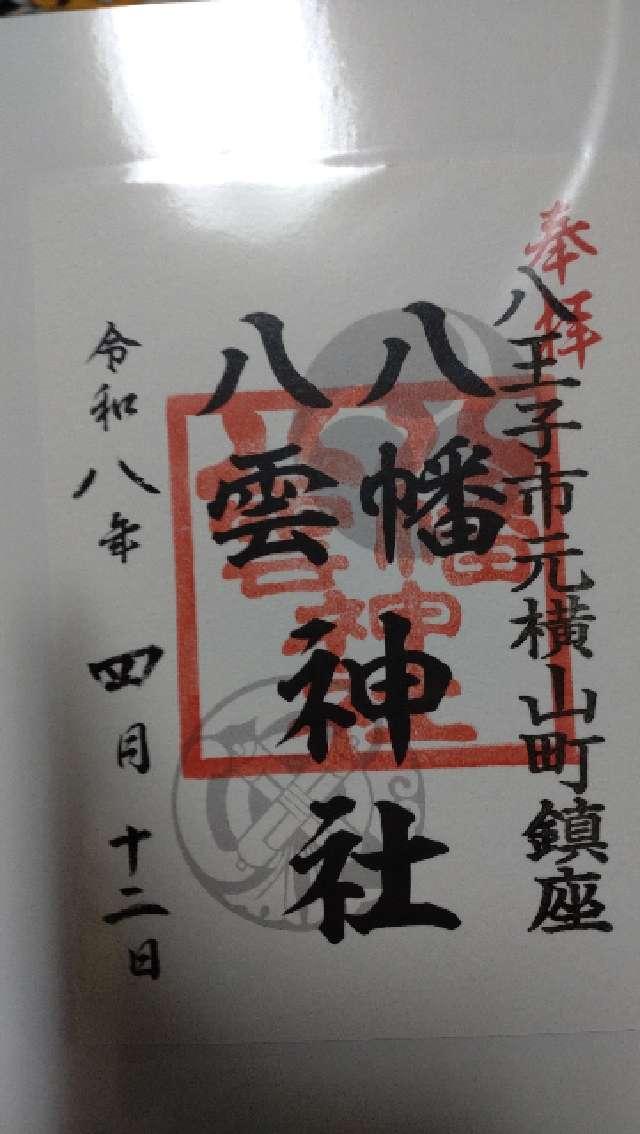 奉拝
八王子市元横山町鎮座
八幡
八雲
神社
令和八年 四月十二日